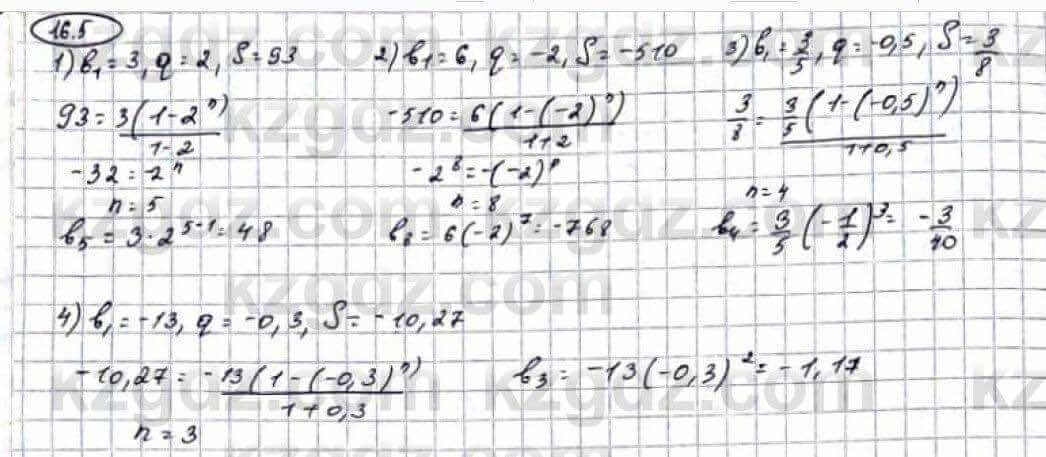 16.5
1) b₁ = 3, q = 2, S = 93
93 = 3(1-2ⁿ)/(1-2)
-32 = -2ⁿ
n = 5
b₅ = 3·2⁵⁻¹ = 48
2) b₁ = 6, q = -2, S = -510
-510 = 6(1-(-2)ⁿ)/(1+2)
-2⁸ = -(-2)ⁿ
n = 8
b₈ = 6(-2)⁷ = -768
3) b₁ = 3/5, q = -0,5, S = 3/8
3/8 = 3/5(1-(-0,5)ⁿ)/(1+0,5)
n = 4
b₄ = 3/5(-1/2)³ = -3/40
4) b₁ = -13, q = -0,3, S = -10,27
-10,27 = -13(1-(-0,3)ⁿ)/(1+0,3)
n = 3
b₃ = -13(-0,3)² = -1,17
kzgdz.com